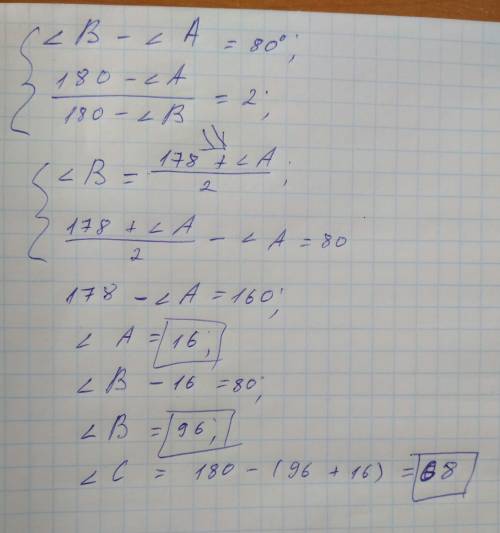 ∠B - ∠A = 80°;
(180 - ∠A) / (180 - ∠B) = 2;
∠B = (178 + ∠A) / 2;
(178 + ∠A) / 2 - ∠A = 80
178 - ∠A = 160;
∠A = 16;
∠B - 16 = 80;
∠B = 96;
∠C = 180 - (96 + 16) = 68